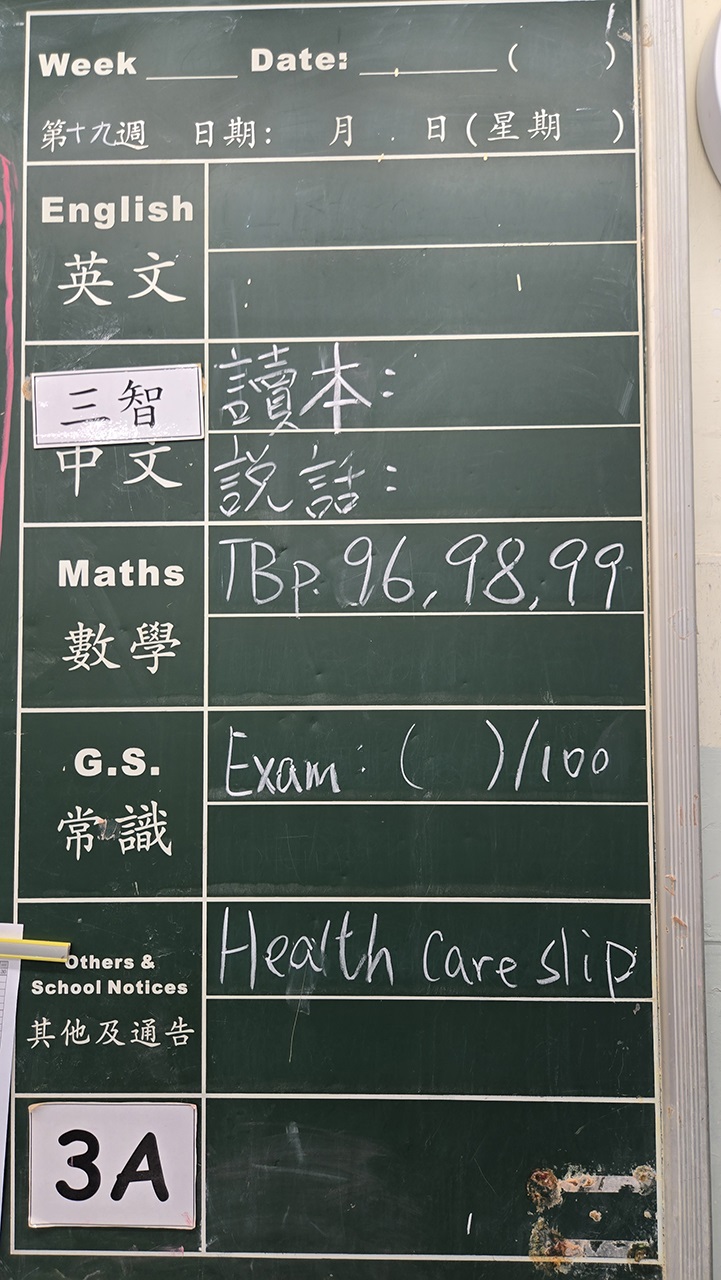 Week _____ Date: _________( )
第十九週 日期: 月 日(星期 )
English
英文
:
三智
中文
讀本:
説話:
Maths
數學
TBp. 96, 98, 99
G.S.
常識
Exam: ( )/100
Others &
School Notices
其他及通告
Health Care slip
3A